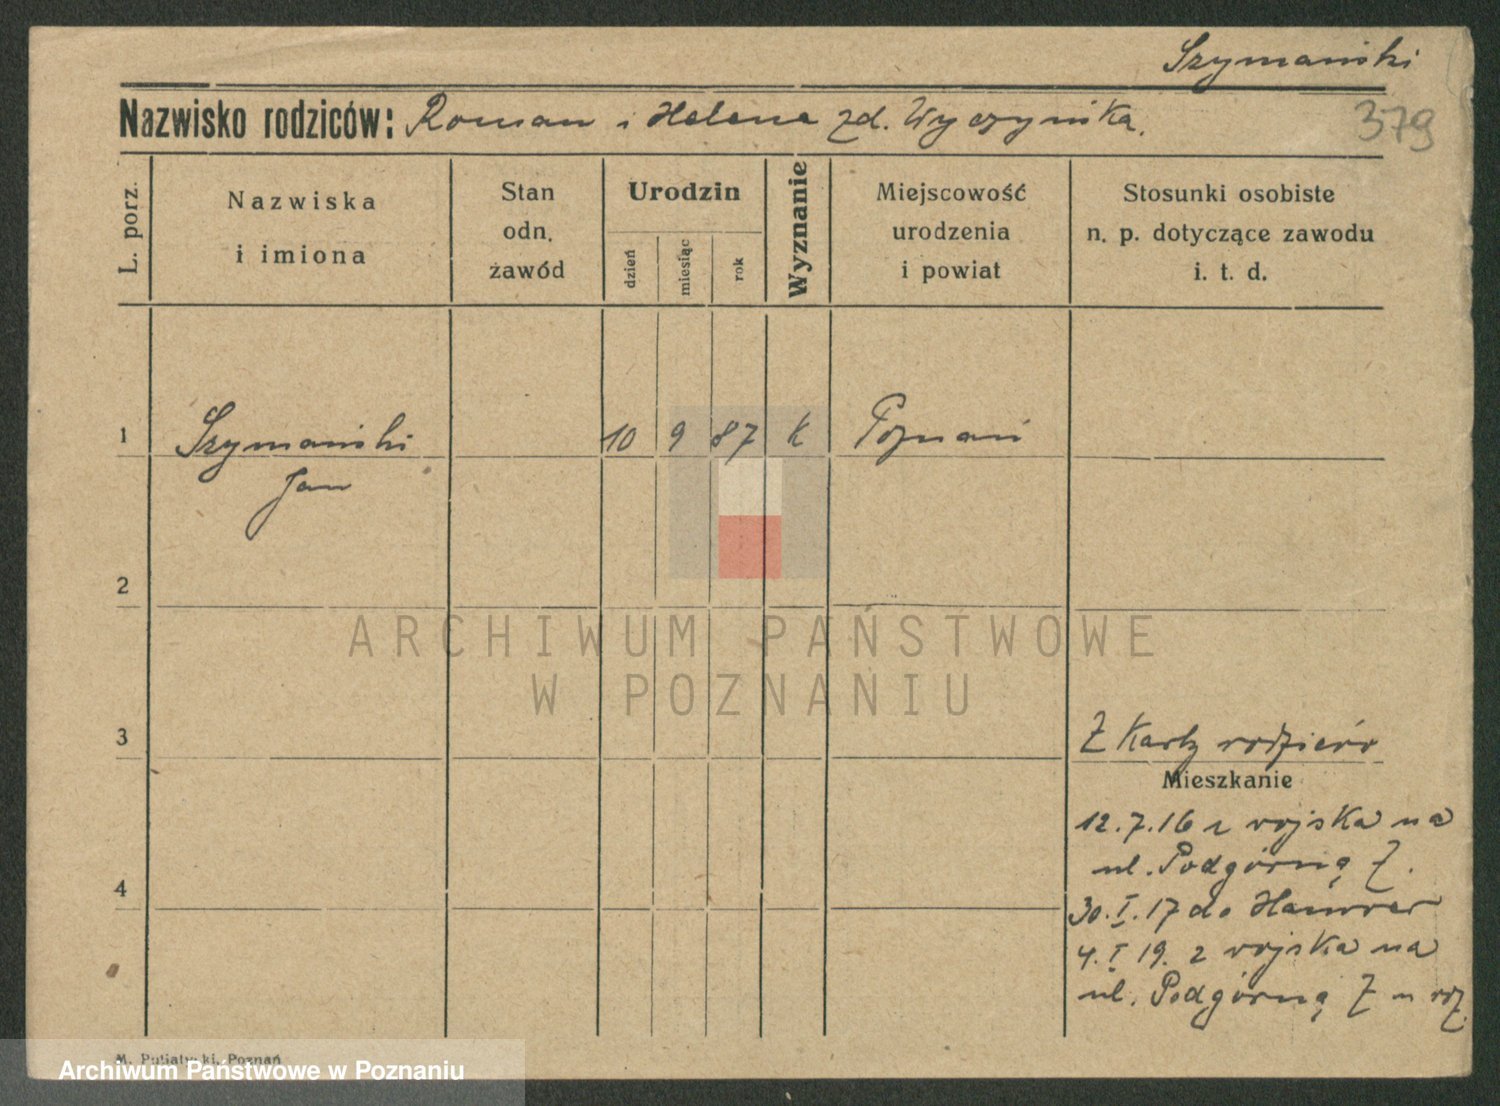 Szymański
Nazwisko rodziców: Roman i Helena zd. Wyczyńska.
379
L. porz.
Nazwiska
i imiona
Stan
odn.
żawód
Urodzin
dzień
miesiąc
rok
Wyznanie
Miejscowość
urodzenia
i powiat
Stosunki osobiste
n. p. dotyczące zawodu
i. t. d.
1
Szymański
Jan
10 9 87 K Poznań
2
3
4
Z Karty rodziców
Mieszkanie
12.7.16 z wojska na
ul. Podgórną 7.
30.I.17 do Hannover
4.I 19. z wojska na
ul. Podgórną 7 u rodz.
M. Putiatycki, Poznań
ARCHIWUM PAŃSTWOWE
W POZNANIU
Archiwum Państwowe w Poznaniu